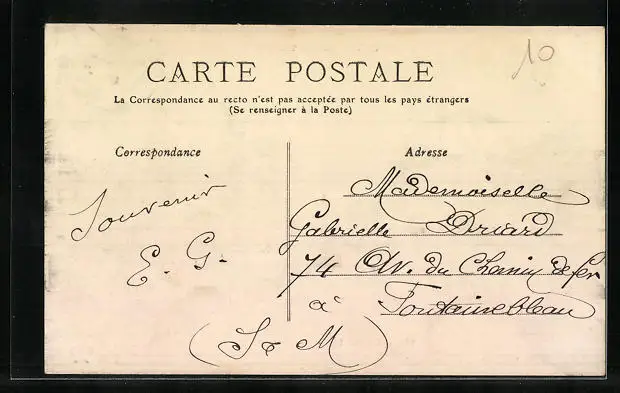 10
CARTE POSTALE
La Correspondance au recto n'est pas acceptée par tous les pays étrangers
(Se renseigner à la Poste)
Correspondance
Adresse
Souvenir
E. G.
Mademoiselle
Gabrielle Driard
74 Av. du Chemin de fer
à Fontainebleau
(S & M)